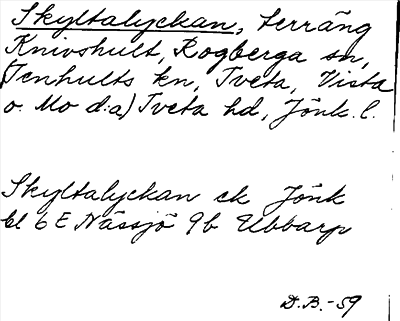 Skyltalyckan, terräng
Knivshult, Rogberga sn,
Tenhults kn, Tveta, Vista
o. Mo d:a) Tveta hd, Jönk. l.
Skyltalyckan ek Jönk
bl 6 E Nässjö 9b Ubbarp
D.B.-59